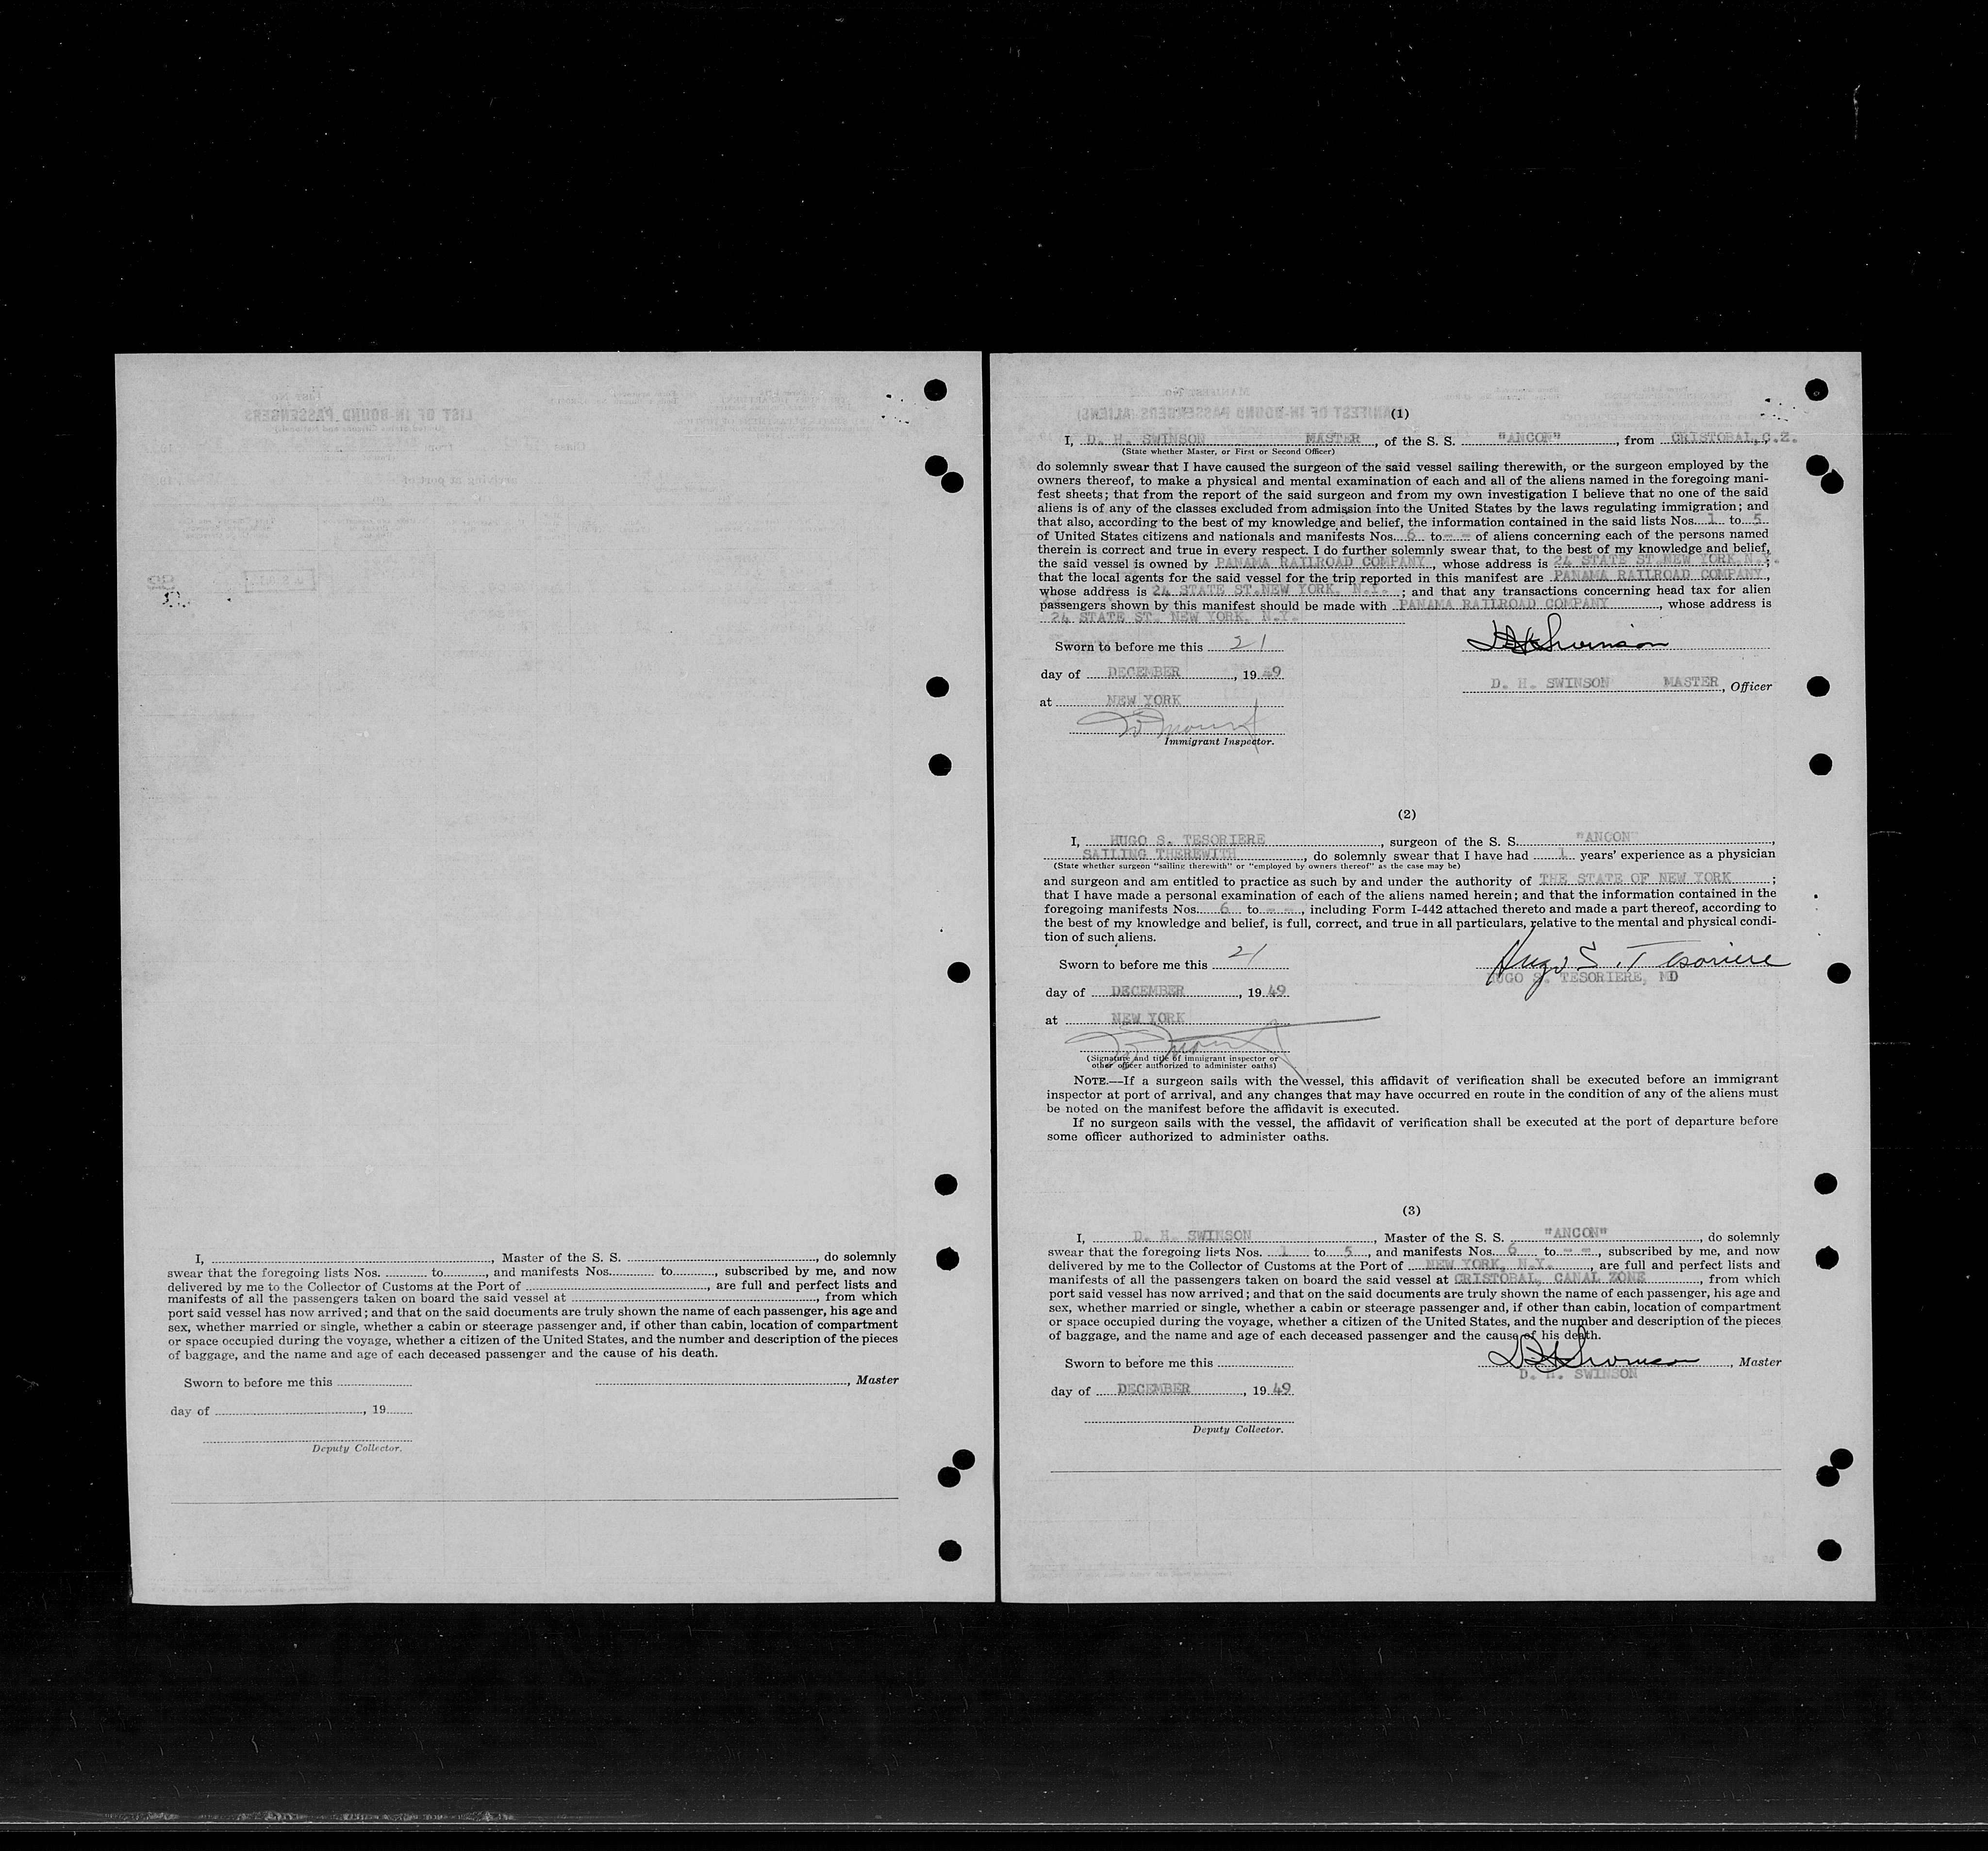 I, ........, Master of the S. S. ........, do solemnly
swear that the foregoing lists Nos. ........ to ........, and manifests Nos. ........ to ........, subscribed by me, and now
delivered by me to the Collector of Customs at the Port of ........, are full and perfect lists and
manifests of all the passengers taken on board the said vessel at ........, from which
port said vessel has now arrived; and that on the said documents are truly shown the name of each passenger, his age and
sex, whether married or single, whether a cabin or steerage passenger and, if other than cabin, location of compartment
or space occupied during the voyage, whether a citizen of the United States, and the number and description of the pieces
of baggage, and the name and age of each deceased passenger and the cause of his death.
Sworn to before me this ........ ........, Master
day of ........, 19....
Deputy Collector.
(1)
I, D. H. SWINSON MASTER, of the S. S. "ANCON", from CRISTOBAL, C.Z.
(State whether Master, or First or Second Officer)
do solemnly swear that I have caused the surgeon of the said vessel sailing therewith, or the surgeon employed by the
owners thereof, to make a physical and mental examination of each and all of the aliens named in the foregoing mani-
fest sheets; that from the report of the said surgeon and from my own investigation I believe that no one of the said
aliens is of any of the classes excluded from admission into the United States by the laws regulating immigration; and
that also, according to the best of my knowledge and belief, the information contained in the said lists Nos. 1 to 5
of United States citizens and nationals and manifests Nos. 6 to - - of aliens concerning each of the persons named
therein is correct and true in every respect. I do further solemnly swear that, to the best of my knowledge and belief,
the said vessel is owned by PANAMA RAILROAD COMPANY, whose address is 24 STATE ST.NEW YORK N.Y.;
that the local agents for the said vessel for the trip reported in this manifest are PANAMA RAILROAD COMPANY,
whose address is 24 STATE ST.NEW YORK, N.Y.; and that any transactions concerning head tax for alien
passengers shown by this manifest should be made with PANAMA RAILROAD COMPANY, whose address is
24 STATE ST. NEW YORK, N.Y.
Sworn to before me this 21 D H Swinson
day of DECEMBER, 19 49 D. H. SWINSON MASTER, Officer
at NEW YORK
Immigrant Inspector.
(2)
I, HUGO S. TESORIERE, surgeon of the S. S. "ANCON",
SAILING THEREWITH, do solemnly swear that I have had 1 years' experience as a physician
(State whether surgeon "sailing therewith" or "employed by owners thereof" as the case may be)
and surgeon and am entitled to practice as such by and under the authority of THE STATE OF NEW YORK;
that I have made a personal examination of each of the aliens named herein; and that the information contained in the
foregoing manifests Nos. 6 to - -, including Form I-442 attached thereto and made a part thereof, according to
the best of my knowledge and belief, is full, correct, and true in all particulars, relative to the mental and physical condi-
tion of such aliens.
Sworn to before me this 21 Hugo S. Tesoriere
HUGO S. TESORIERE, MD
day of DECEMBER, 19 49
at NEW YORK
(Signature and title of immigrant inspector or
other officer authorized to administer oaths)
NOTE.—If a surgeon sails with the vessel, this affidavit of verification shall be executed before an immigrant
inspector at port of arrival, and any changes that may have occurred en route in the condition of any of the aliens must
be noted on the manifest before the affidavit is executed.
If no surgeon sails with the vessel, the affidavit of verification shall be executed at the port of departure before
some officer authorized to administer oaths.
(3)
I, D. H. SWINSON, Master of the S. S. "ANCON", do solemnly
swear that the foregoing lists Nos. 1 to 5, and manifests Nos. 6 to - -, subscribed by me, and now
delivered by me to the Collector of Customs at the Port of NEW YORK, N.Y., are full and perfect lists and
manifests of all the passengers taken on board the said vessel at CRISTOBAL, CANAL ZONE, from which
port said vessel has now arrived; and that on the said documents are truly shown the name of each passenger, his age and
sex, whether married or single, whether a cabin or steerage passenger and, if other than cabin, location of compartment
or space occupied during the voyage, whether a citizen of the United States, and the number and description of the pieces
of baggage, and the name and age of each deceased passenger and the cause of his death.
Sworn to before me this ........ D H Swinson, Master
D. H. SWINSON
day of DECEMBER, 19 49
Deputy Collector.